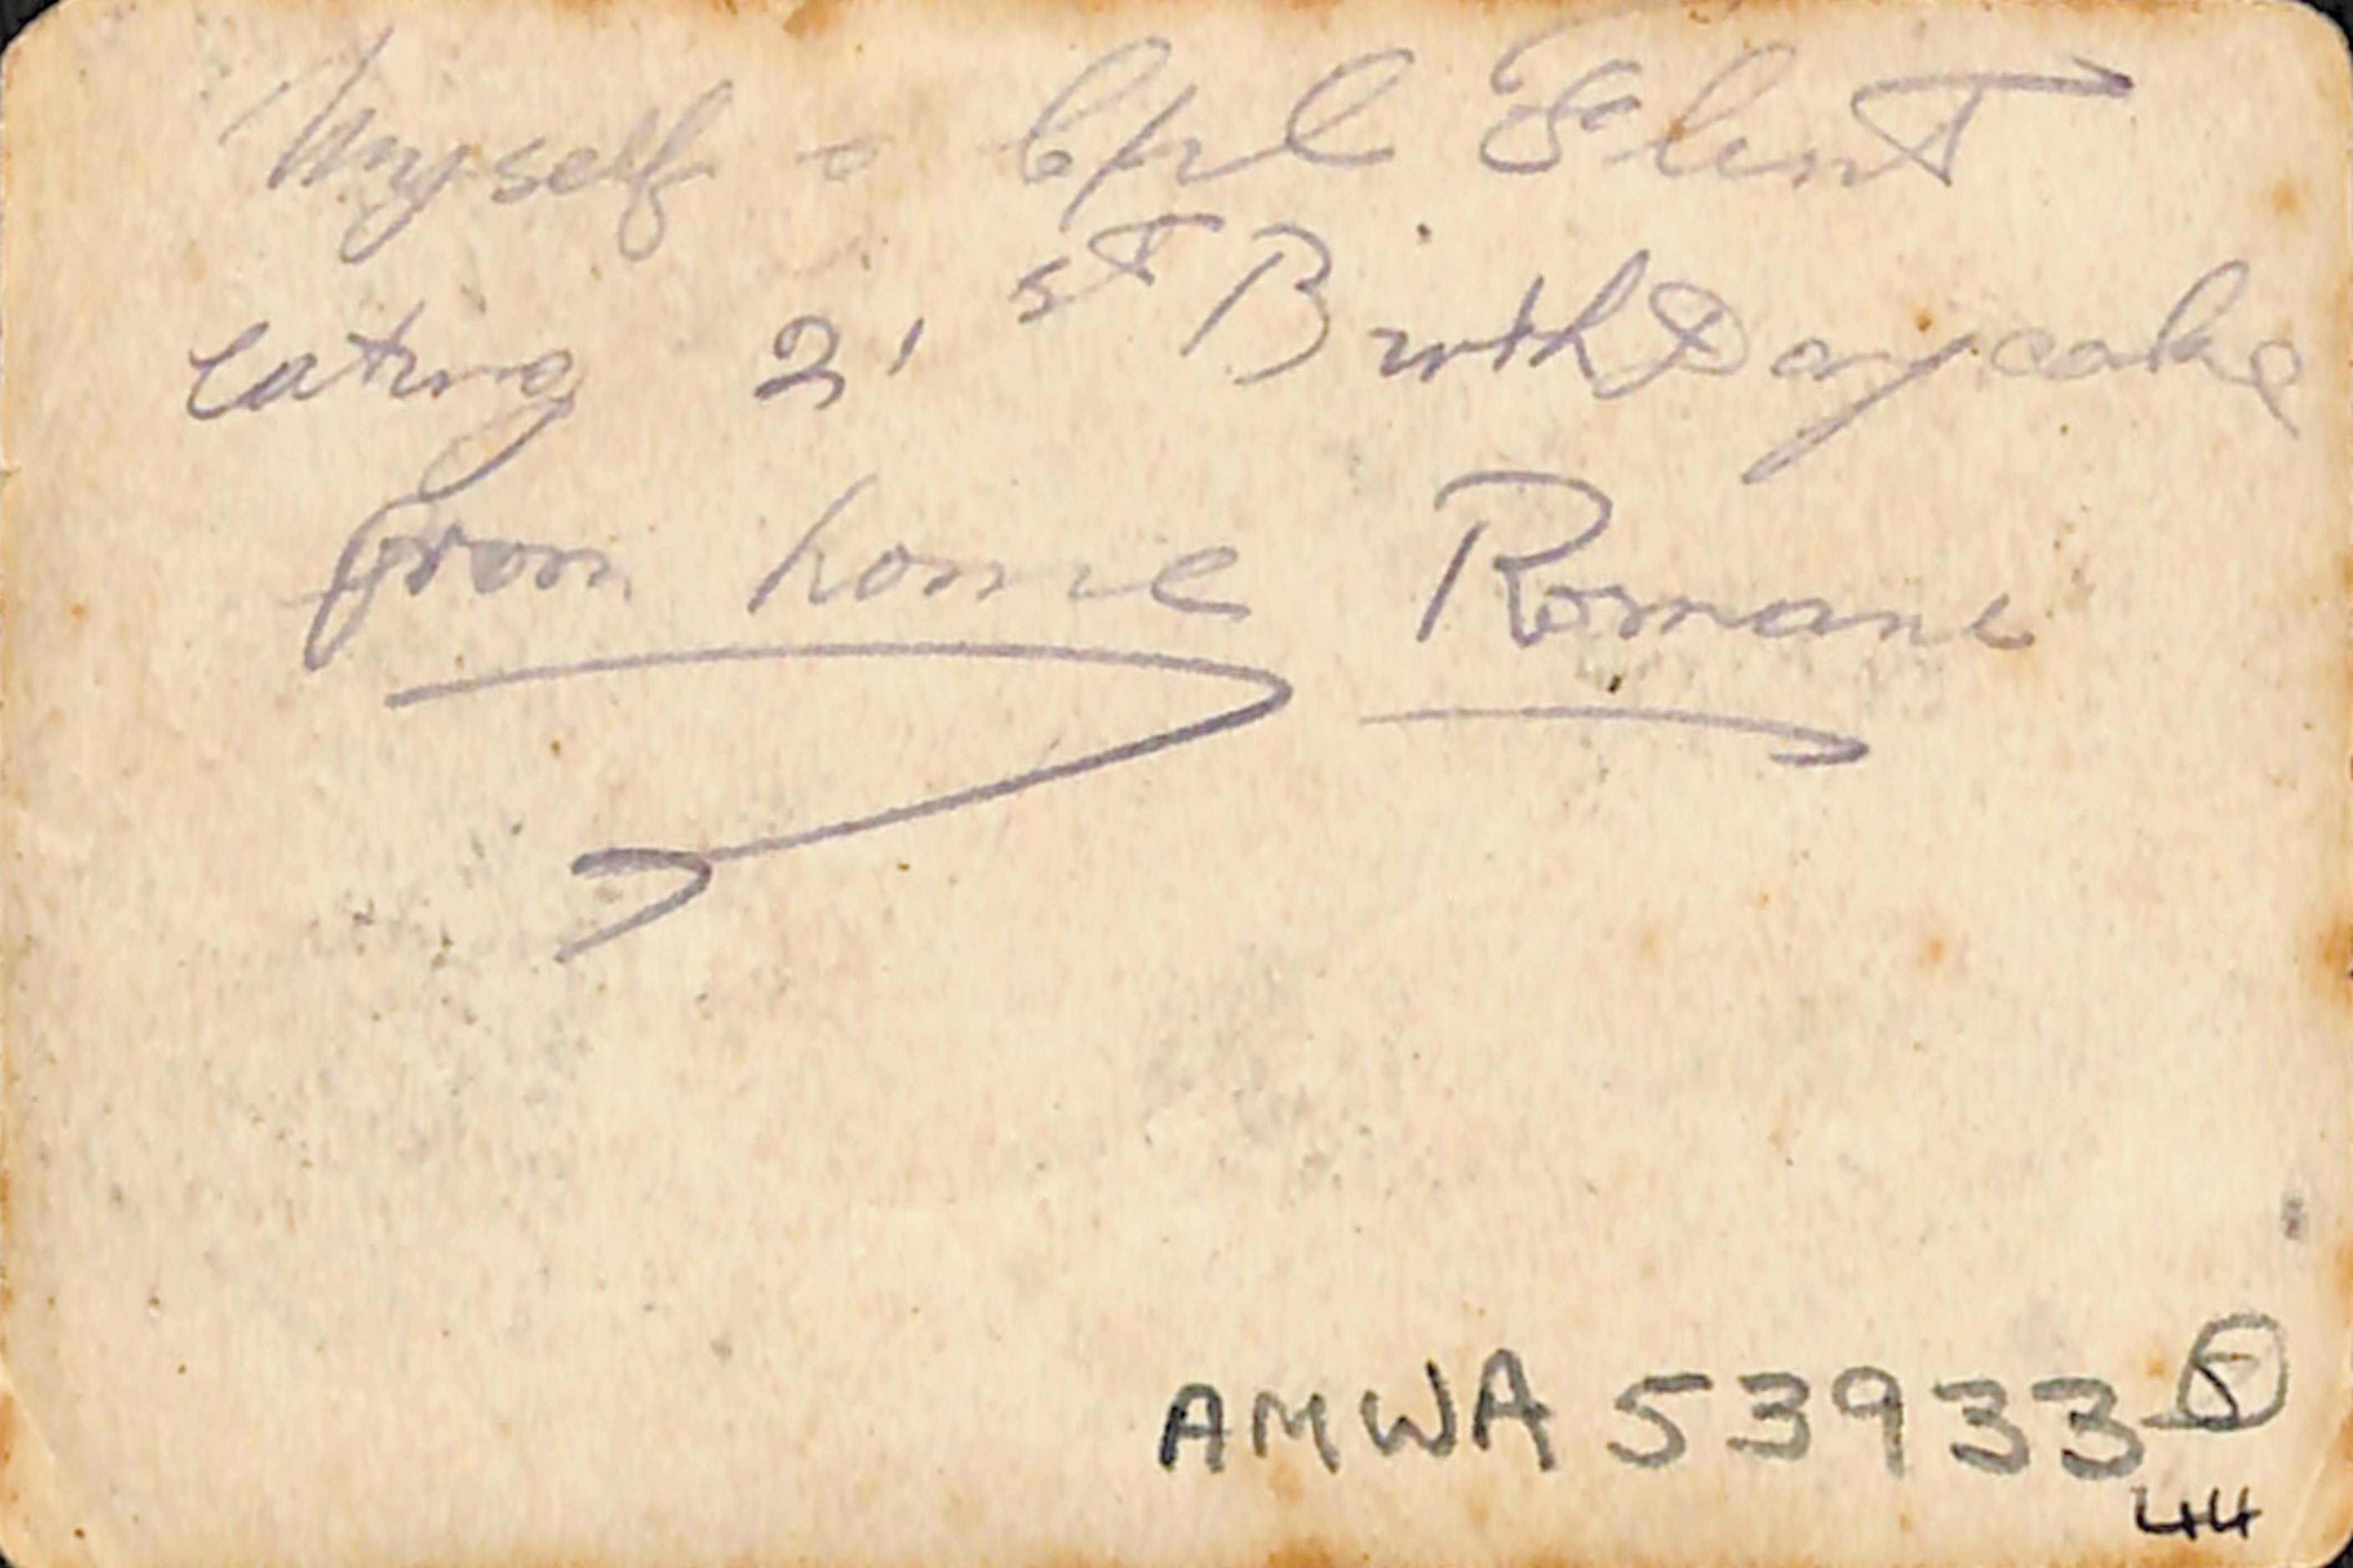 Myself & Cpl Flint
eating 21st BirthDay cake
from home Romani
AMWA 53933
5
44